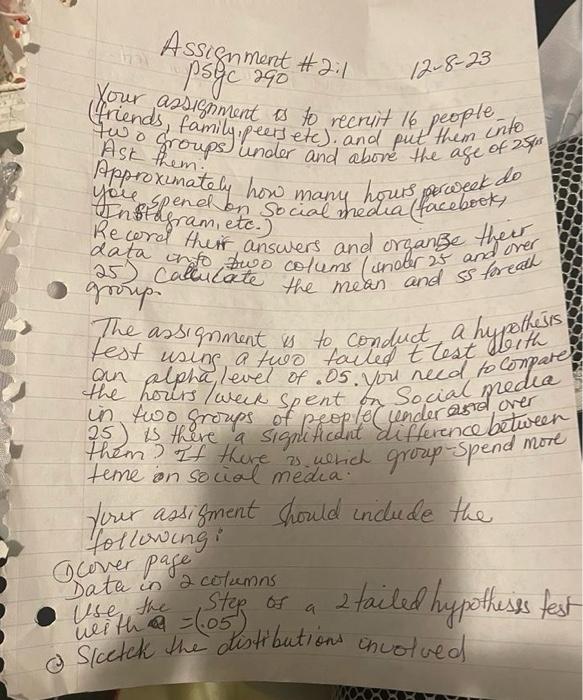 Assignment # 2:1 12-8-23
psyc 290
Your assignment is to recruit 16 people
(friends, family, peers etc). and put them into
two groups) under and above the age of 25yrs
Ask them:
Approxumately how many hours perweek do
you spend on Social media (facebook,
Instagram, etc.)
Record their answers and organize their
data into two colums (under 25 and over
25) Calculate the mean and ss for each
group.
The assignment is to conduct a hypothesis
test using a two tailed t test with
an alpha level of .05. you need to compare
the hours / week spent on Social media
in two groups of people (under and over
25) is there a significant difference between
them? If there is which group-spend more
teme on social media.
Your assigment should include the
following:
cover page
Data in 2 columns
Use the Step of a 2 tailed hypothesis test
with = (.05)
Scetch the distibutions involved